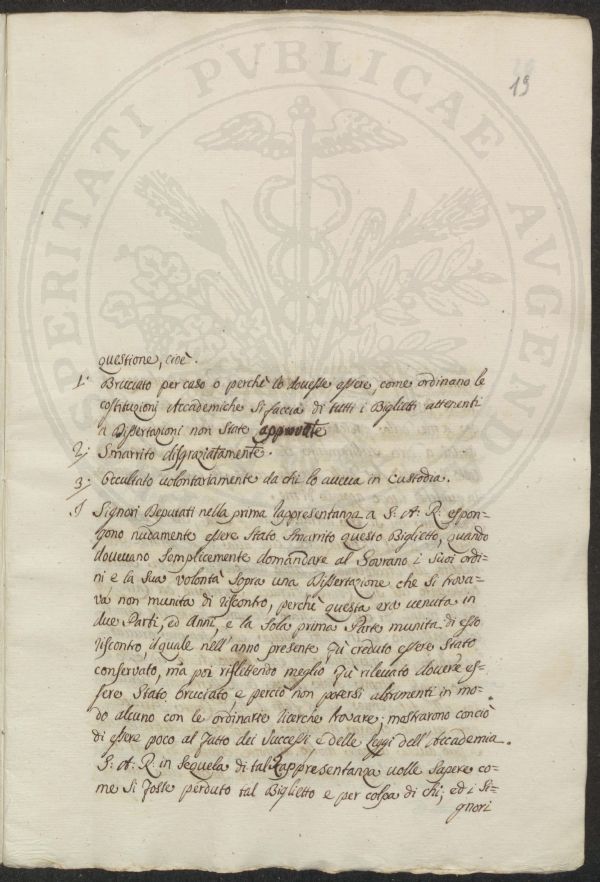 19
questione, cioè.
1.° Bruciato per caso o perchè lo dovesse essere, come ordinano le
costituzioni Accademiche si faccia di tutti i Biglietti attenenti
a Dissertazioni non state approvate
2.° Smarrito disgraziatamente.
3.° Occultato volontariamente da chi lo aveva in Custodia.
I Signori Deputati nella prima rappresentanza a S. A. R. espon=
gono nudamente essere stato smarrito questo Biglietto, quando
dovevano semplicemente domandare al Sovrano i suoi ordi=
ni e la sua volontà sopra una Dissertazione che si trova=
va non munita di riscontro, perchè questa era venuta in
due Parti, ed Anni, e la sola prima Parte munita di esso
riscontro, il quale nell'anno presente fù creduto essere stato
conservato, ma poi riflettendo meglio fù rilevato dovere es=
sere stato bruciato, e perciò non potersi altrimenti in mo=
do alcuno con le ordinarie ricerche trovare; mostrarono conciò
di essere poco al fatto dei successi e delle Leggi dell'Accademia.
S. A. R. in sequela di tal rappresentanza volle sapere co=
me si fosse perduto tal Biglietto e per colpa di chi; ed i Si=
gnori
PROSPERITATI PVBLICAE AVGENDAE